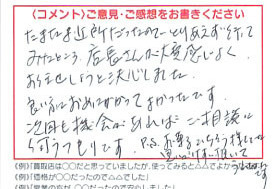 〈コメント〉ご意見・ご感想をお書きください
たまたま近所だったのでとりあえず行って
みたところ、店長さんが大変感じよく
お任せしようと決心しました。
良い方にお会いできてよかったです。
次回も機会があればご相談に
伺うつもりです。P.S.
(例)「買取店は〇〇だと思っていましたが、使ってみると△△でよか
(例)「価格が〇〇だったので△△でした」
(例)「営業の方が〇〇だったので安心しました」